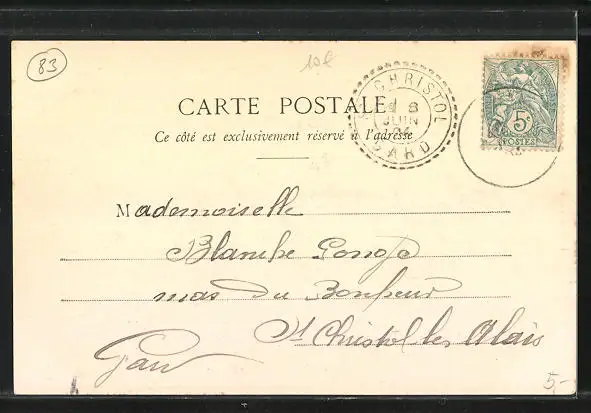 83
10€
CARTE POSTALE
Ce côté est exclusivement réservé à l'adresse
CHRISTOL
8
JUIN
GARD
5c
POSTES
Mademoiselle
Blanche
mas du Bonheur
St Christol les Alais
Gard
5,-